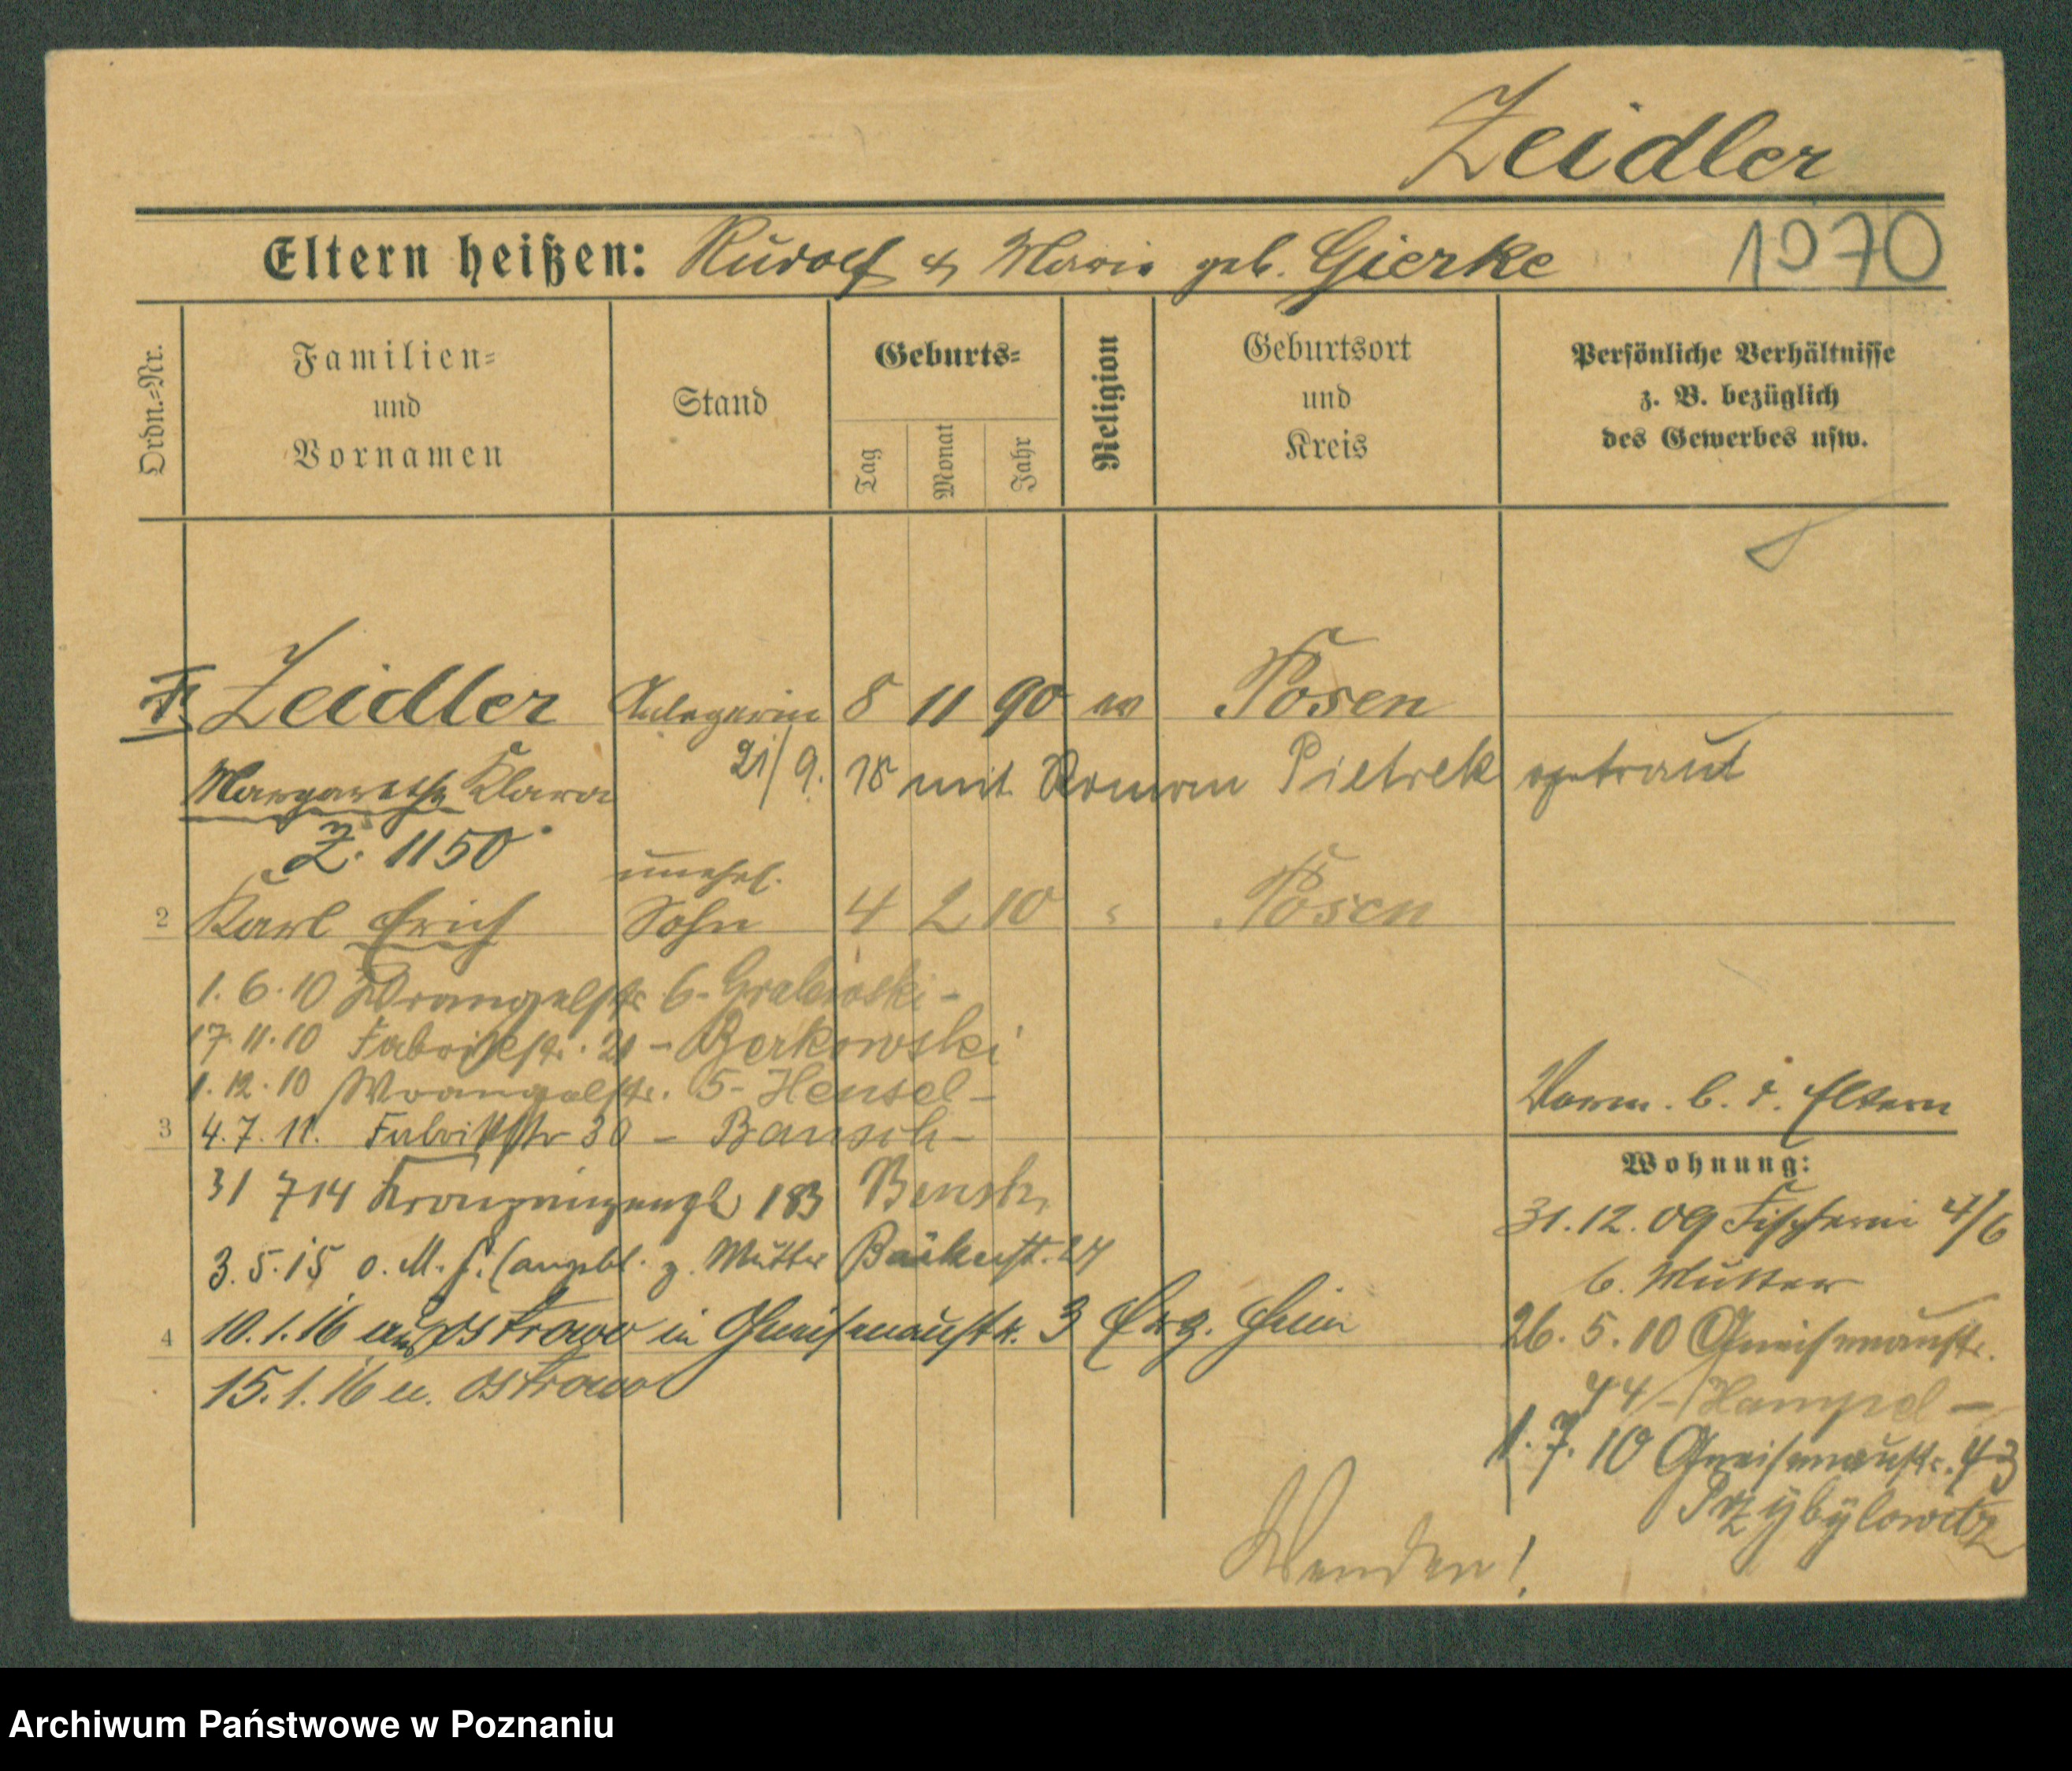 Zeidler
Eltern heißen: Rudolf & Marie geb. Gierke
1970
Ordn.-Nr.
Familien-
und
Vornamen
Stand
Geburts-
Tag
Monat
Jahr
Religion
Geburtsort
und
Kreis
Persönliche Verhältnisse
z. B. bezüglich
des Gewerbes usw.
Zeidler Anlegerin 8 11 90 ev Posen
Margarethe Klara 21/9. 18 mit Roman Pietrek getraut
Z. 1150
unehel.
2 Karl Erich Sohn 4 2 10 " Posen
1.6.10 Wrangelstr. 6 - Grabowski -
17.11.10 Fabrikstr. 21 - Berkowski
1.12.10 Wrangelstr. 5 - Hensel -
3 4.7.11. Fabrikstr 30 - Bansch -
31 7 14 Kronprinzenstr 183 Bensch
3.5.15 o. M. f. (angebl. z. Mutter Bäckerst. 24
4 10.1.16 aus Ostrowo in Gneisenaustr. 3 Erz. Heim
15.1.16 n. Ostrowo
Vorm. b. d. Eltern
Wohnung:
31.12.09 Fischerei 4/6
b. Mutter
26.5.10 Gneisenaustr.
44 - Hampel -
1.7.10 Gneisenaustr. 43
Przybylowitz
Wenden!
Archiwum Państwowe w Poznaniu